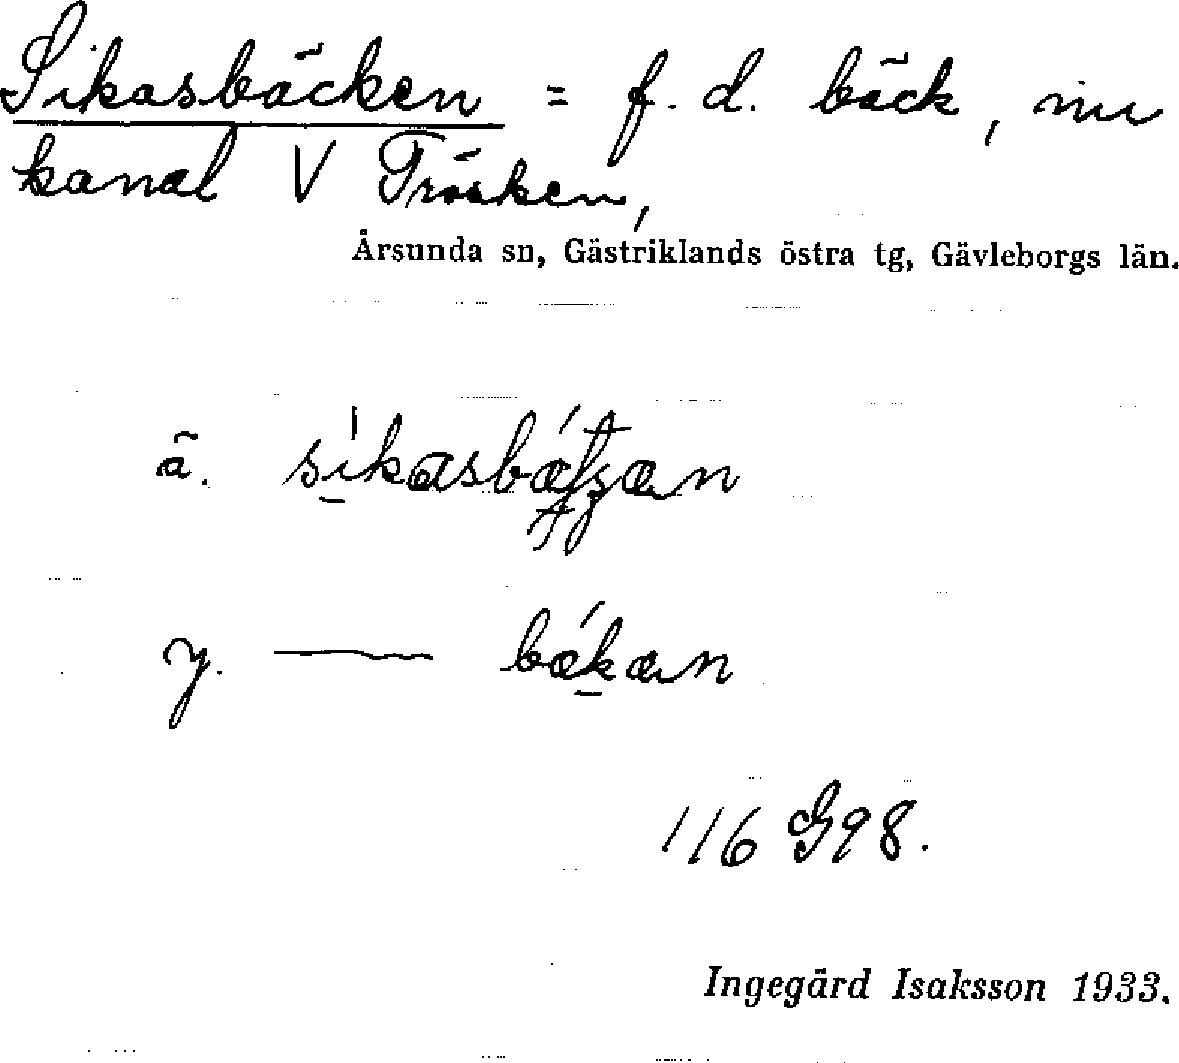 Sikasbäcken = f. d. bäck, nu
kanal V Trösken,
Årsunda sn, Gästriklands östra tg, Gävleborgs län.
ä.
y. —— bækæn
116 G98.
Ingegärd Isaksson 1933.